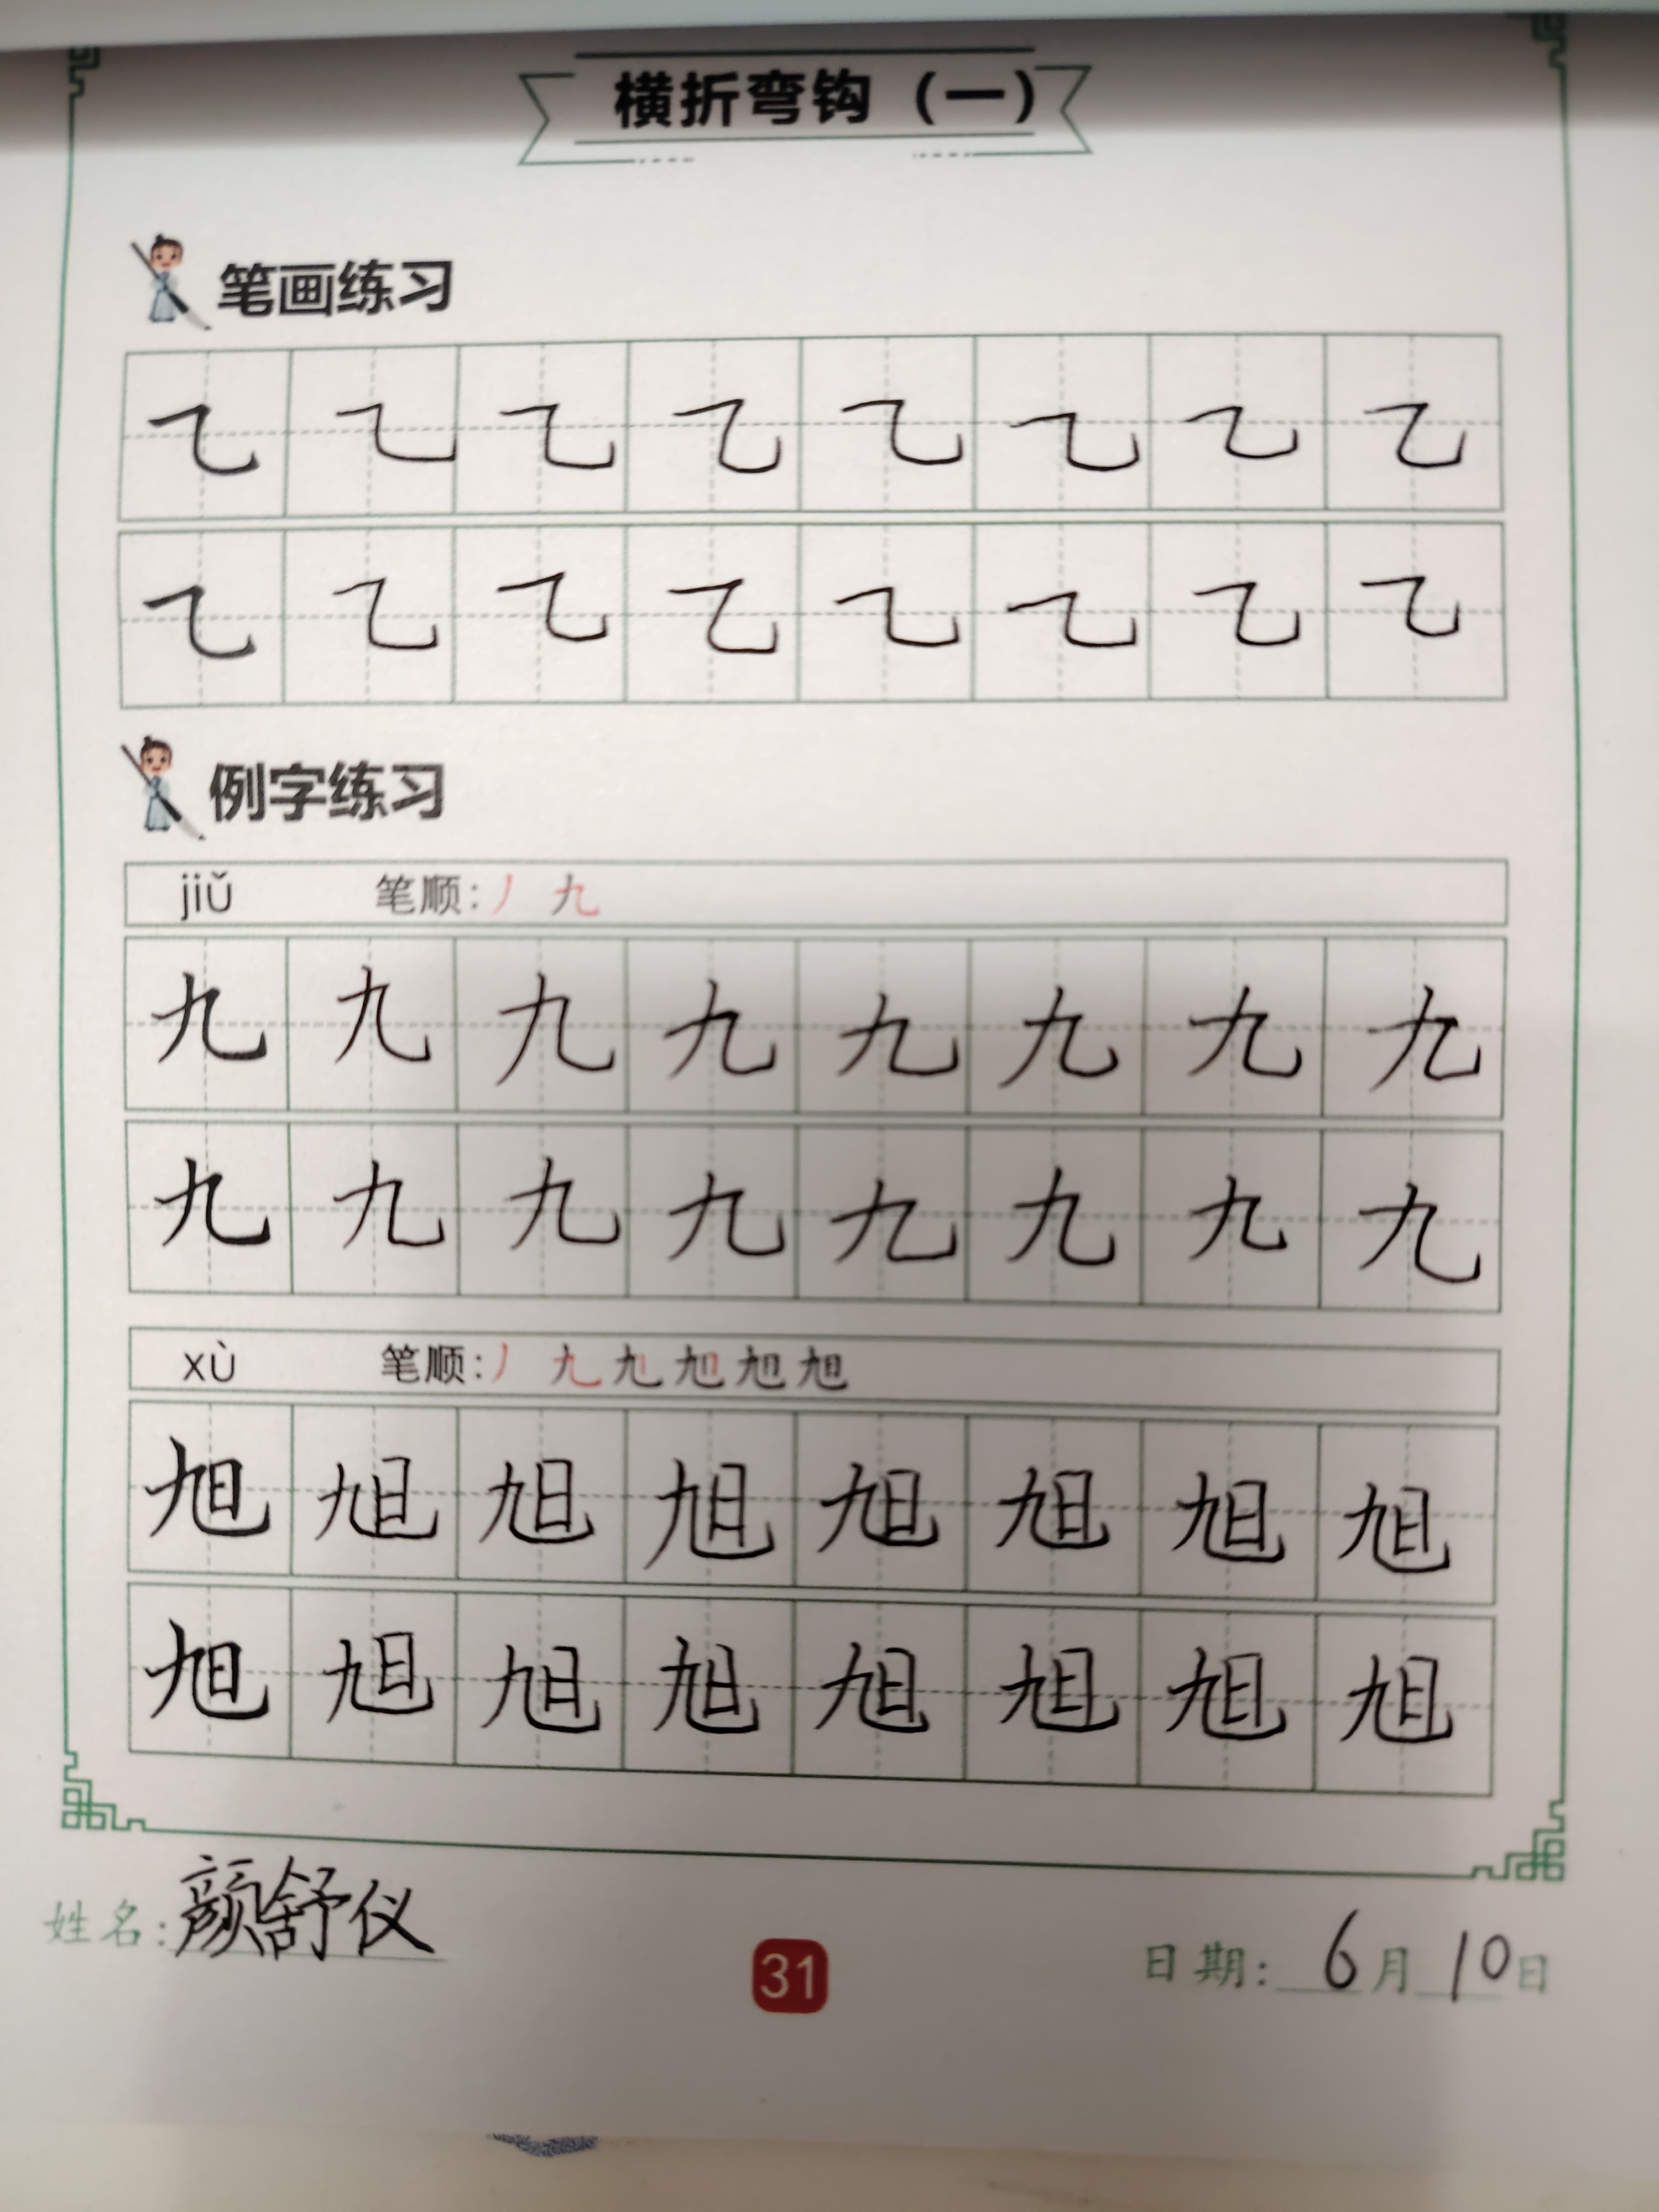 横折弯钩（一）
笔画练习
㇈ ㇈ ㇈ ㇈ ㇈ ㇈ ㇈ ㇈
㇈ ㇈ ㇈ ㇈ ㇈ ㇈ ㇈ ㇈
例字练习
jiǔ 笔顺：丿 九
九 九 九 九 九 九 九 九
九 九 九 九 九 九 九 九
xù 笔顺：丿 九
旭 旭 旭 旭 旭 旭 旭 旭
旭 旭 旭 旭 旭 旭 旭 旭
姓名：颜舒仪
31
日期：6月10日